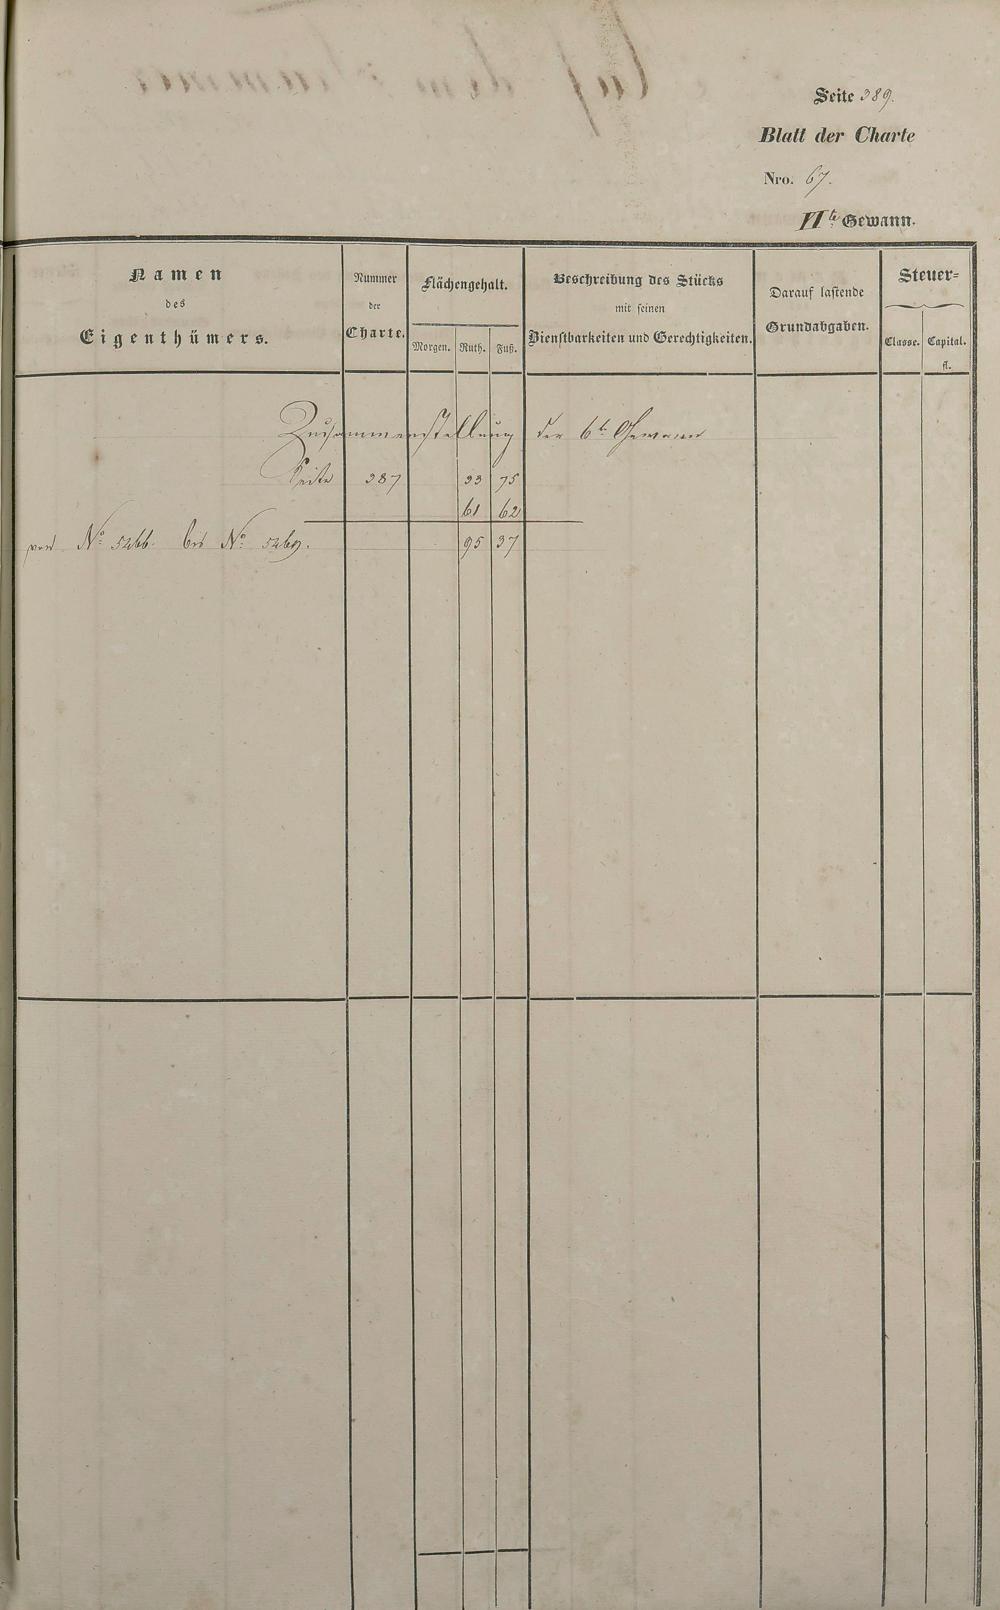 Seite 389.
Blatt der Charte
Nro. 67.
VIte Gewann.
Namen
des
Eigenthümers.
Nummer
der
Charte.
Flächengehalt.
Morgen. Ruth. Fuß.
Beschreibung des Stücks
mit seinen
Dienstbarkeiten und Gerechtigkeiten.
Darauf lastende
Grundabgaben.
Steuer=
Classe. Capital.
fl.
Zusammenstellung der 6te Gewann
Seite 387 33 75
61 62
von No 5266. bis No 5269. 95 37